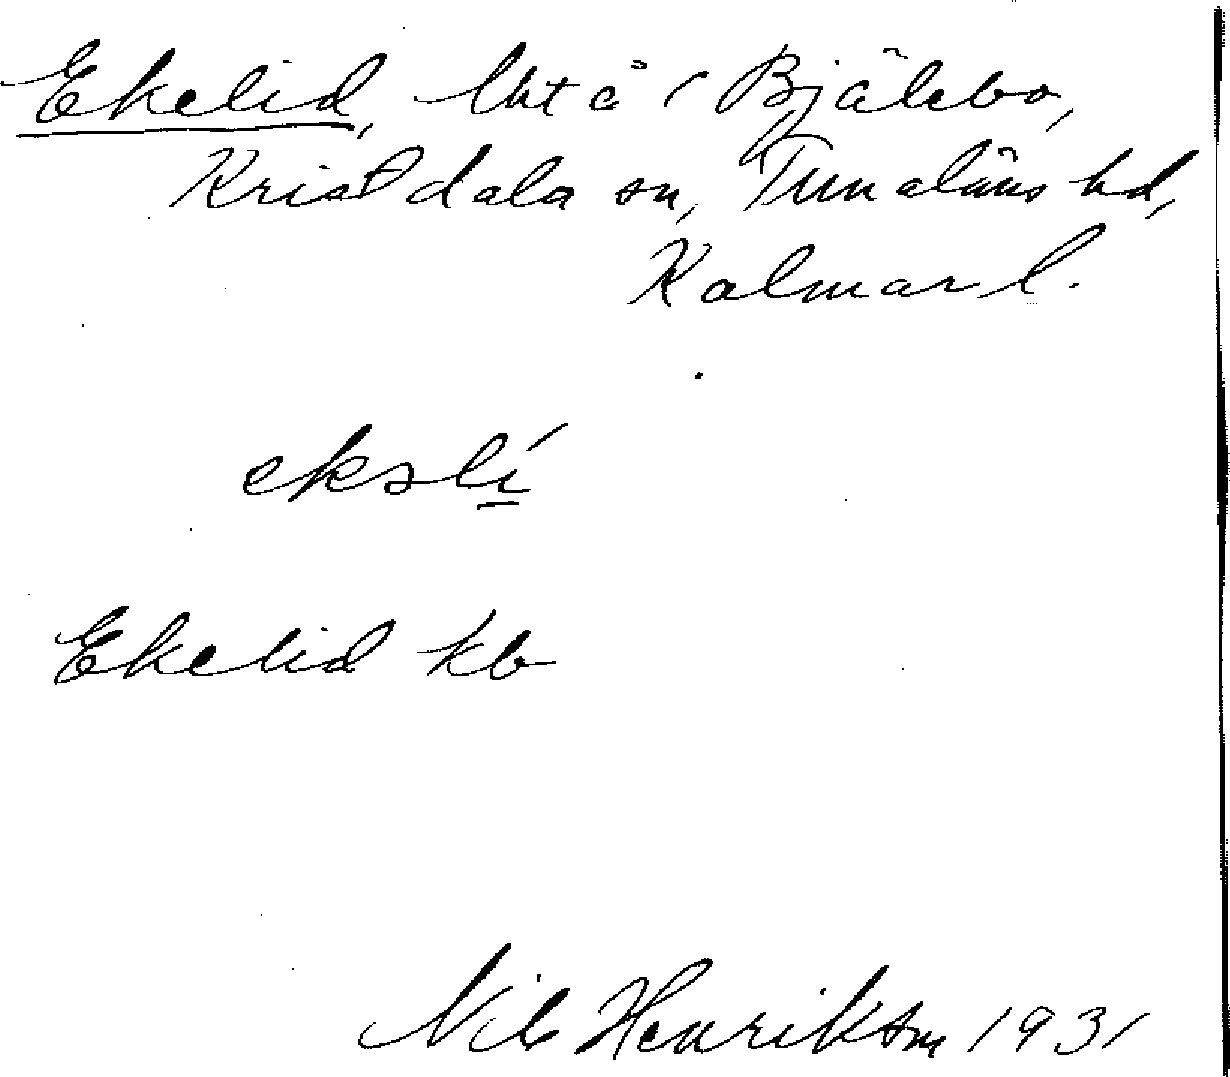 Ekelid, lht å 1 Bjälebo,
Kristdala sn, Tunaläns hd,
Kalmar l.
ekəlí
Ekelid kb
Nils Henrikson 1931